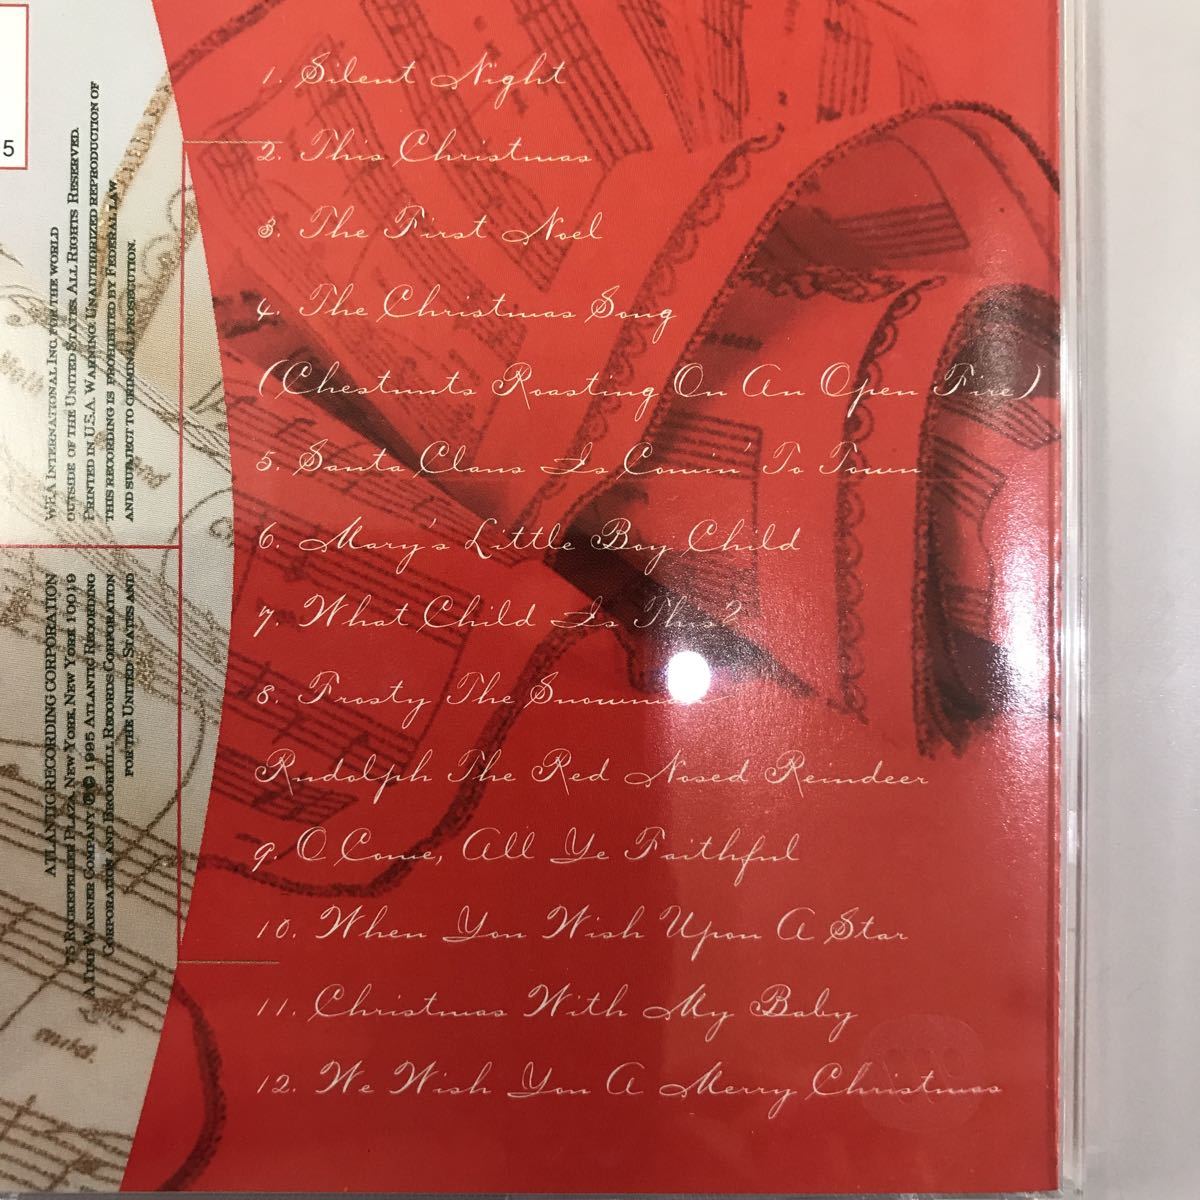 1. Silent Night
2. This Christmas
3. The First Noel
4. The Christmas Song
(Chestnuts Roasting On An Open Fire)
5. Santa Claus Is Comin' To Town
6. Mary's Little Boy Child
7. What Child Is This?
8. Frosty The
Rudolph The Red Nosed Reindeer
9. O Come, All Ye Faithful
10. When You Wish Upon A Star
11. Christmas With My Baby
12. We Wish You A Merry Christmas
5
ATLANTIC RECORDING CORPORATION
75 ROCKEFELLER PLAZA, NEW YORK, NEW YORK 10019
A TIME WARNER COMPANY ℗© 1995 ATLANTIC RECORDING
CORPORATION AND BROOKHILL RECORDS CORPORATION
FOR THE UNITED STATES AND
WEA INTERNATIONAL INC. FOR THE WORLD
OUTSIDE OF THE UNITED STATES. ALL RIGHTS RESERVED.
PRINTED IN U.S.A. WARNING: UNAUTHORIZED REPRODUCTION OF
THIS RECORDING IS PROHIBITED BY FEDERAL LAW
AND SUBJECT TO CRIMINAL PROSECUTION.